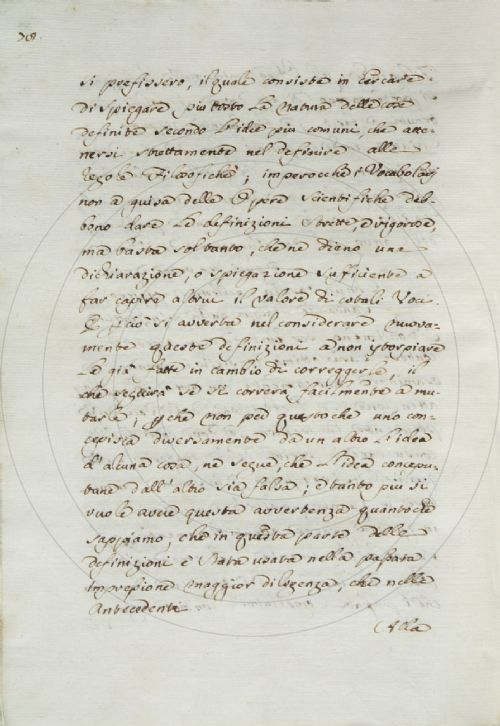 si prefissero, il quale consiste in cercare
di spiegare più tosto la natura delle cose
definite secondo l'idee più comuni, che atte-
nersi strettamente nel definire alle
regole Filosofiche; imperocchè i Vocabolarj
non a guisa delle Opere scientifiche deb-
bono dare le definizioni strette, e rigorose,
ma basta soltanto, che ne dieno una
dichiarazione, o spiegazione suficiente a
far capire altrui il valore di cotali Voci.
E ciò si averta nel considerare nuova-
mente queste definizioni a non istorpiare
le già fatte in cambio di correggerle, il
che seguirà se si correrà facilmente a mu-
tarle; che non per questo che uno con-
cepista diversamente da un altro l'idea
d'alcuna cosa, ne segue, che l'idea concepu-
tane dall'altro sia falsa; e tanto più si
vuole avere questa avvertenza quanto che
sappiamo, che in questa parte delle
definizioni è stata usata nella passata
Impressione maggior diligenza, che nelle
Antecedenti.
Alla